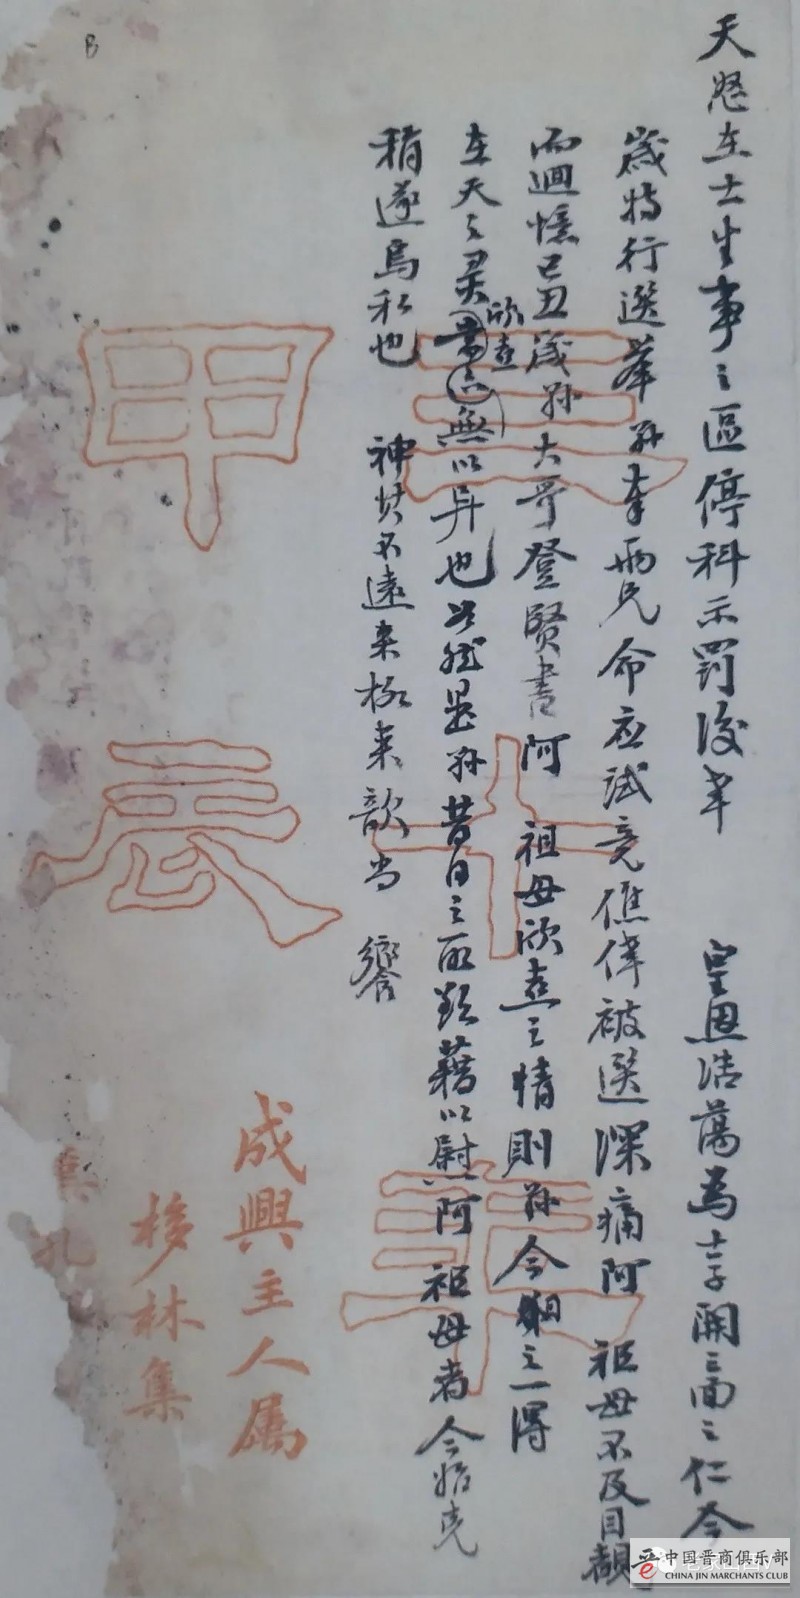 天怒在士生事之區停科示罰後來 皇恩浩蕩為士子開三面之仁今
歲特行選舉孫奉兩兄命應試竟僬倖被選深痛阿 祖母不及目覩
而迴憶己丑歲孫大哥登賢書阿 祖母欣喜之情則孫今朝之一得
在天之靈當亦欣喜無以异也然是孫昔日之所欺藉以慰阿 祖母者今始克
稍遂烏私也 神其不遠來格來歆尚 饗
三十年
甲辰
成興主人屬
移林集
B
中国晋商俱乐部
CHINA JIN MARCHANTS CLUB